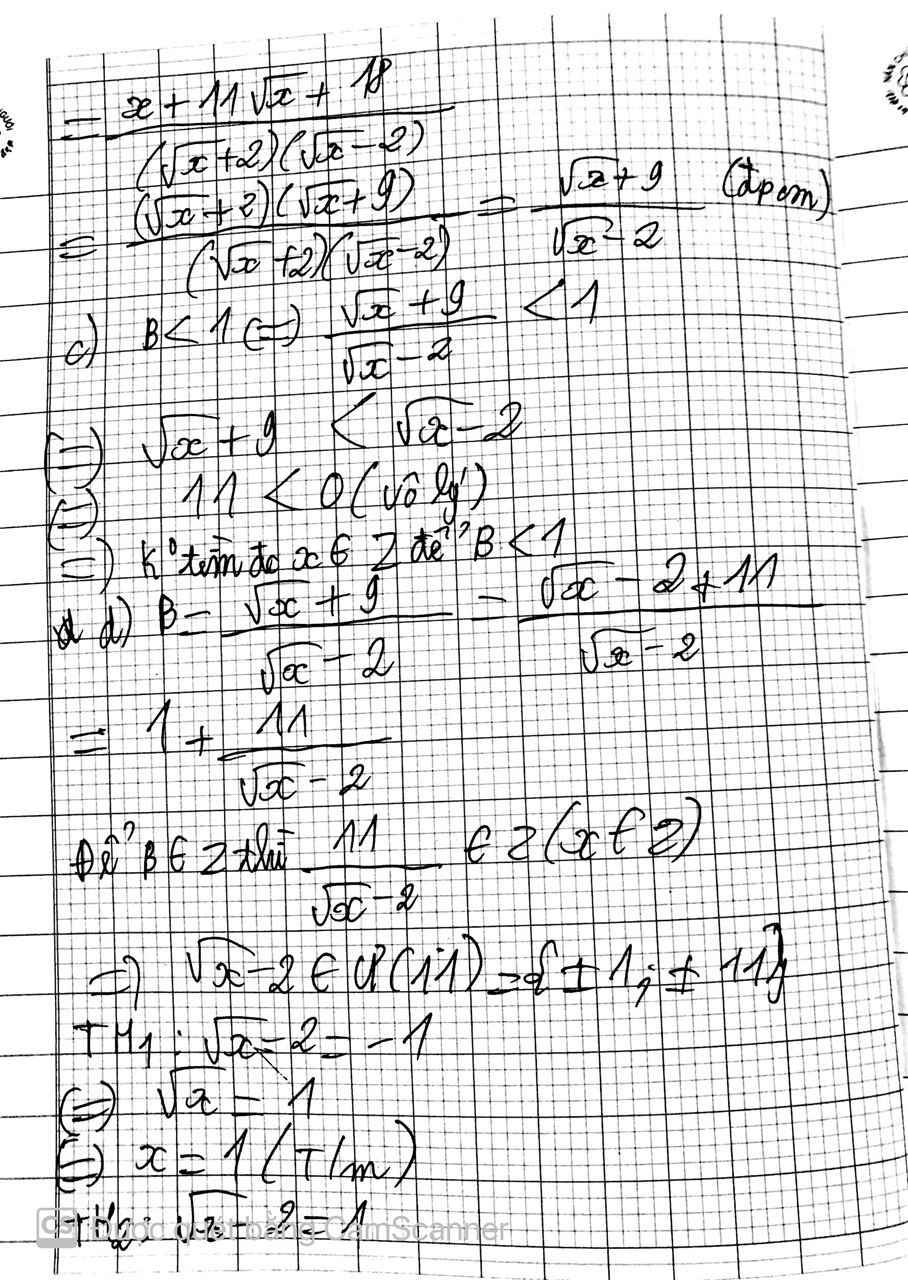 = (x + 11√x + 18) / ((√x + 2)(√x - 2))
= ((√x + 2)(√x + 9)) / ((√x + 2)(√x - 2)) = (√x + 9) / (√x - 2) (đpcm)
c) B < 1 (=) (√x + 9) / (√x - 2) < 1
(=) √x + 9 < √x - 2
(=) 11 < 0 (vô lý)
=) K° tìm đc x ∈ Z để B < 1
d) B = (√x + 9) / (√x - 2) = (√x - 2 + 11) / (√x - 2)
= 1 + 11 / (√x - 2)
Để B ∈ Z thì 11 / (√x - 2) ∈ Z (x ∈ Z)
=) √x - 2 ∈ Ư(11) = {± 1; ± 11}
TH1 : √x - 2 = -1
(=) √x = 1
(=) x = 1 (T/m)
TH2 : √x - 2 = 1
CS Được quét bằng CamScanner